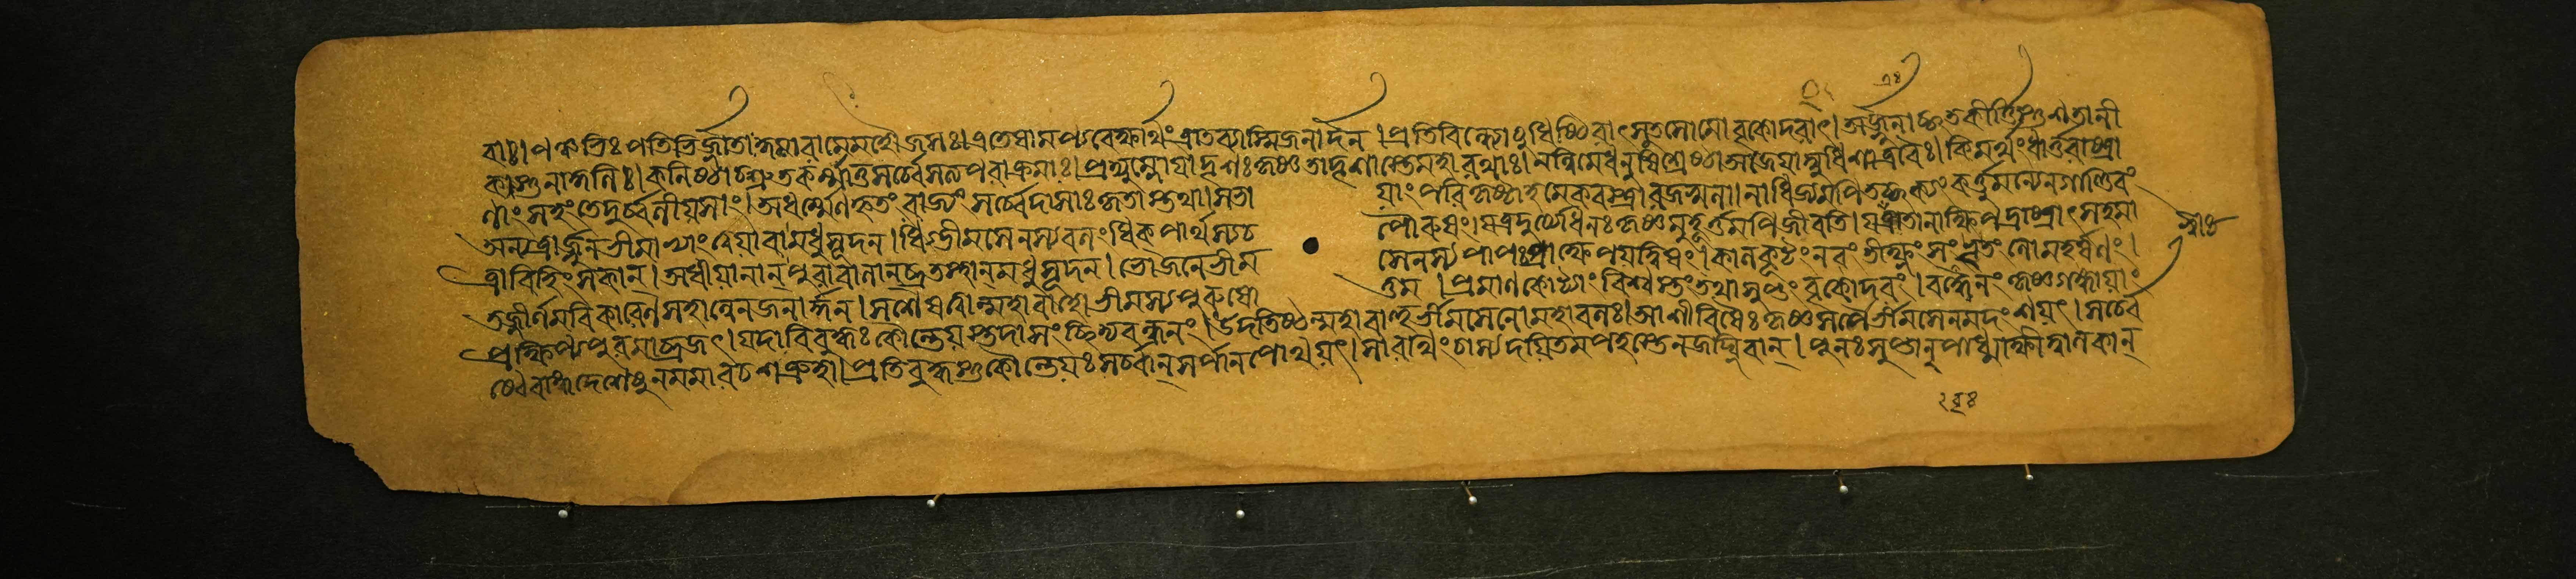 ৰাঃ। পঞ্চভিঃ পতিভির্জ্জাতাঃ কুমাৰা মে মহৌজসঃ। এতেষামপ্যবেক্ষার্থং ত্রাতব্যাস্মি জনার্দন। প্রতিবিন্ধ্যো যুধিষ্ঠিৰাৎ সুতসোমো বৃকোদৰাৎ। অর্জ্জুনাচ্ছ্রুতকীর্ত্তিস্তু শতানী
কস্তু নাকুলিঃ। কনিষ্ঠাচ্ছ্রুতকর্ম্মা তু সর্ব্বে সত্যপৰাক্রমাঃ। প্রদ্যুম্নো যাদৃশঃ কৃষ্ণ তাদৃশাস্তে মহাৰথাঃ। নন্বিমে ধনুষি শ্রেষ্ঠা অজেয়া যুধি শাত্রবৈঃ। কিমর্থং ধার্ত্তৰাষ্ট্রা
ণাং সহংতে দুর্ব্বলীয়সাং। অধর্ম্মেণ হৃতং ৰাজ্যং সর্ব্বে দাসাঃ কৃতাস্তথা। সভা য়াং পৰিকৃষ্টাহমেকবস্ত্রা ৰজস্বলা। নাধিজ্যমপি যচ্ছক্যং কর্ত্তুমন্যেন গাণ্ডিবং
অন্যত্রার্জ্জুনভীমাভ্যাং ত্বয়া বা মধুসূদন। ধিগ্ভীমসেনস্য বলং ধিক্ পার্থস্য চ পৌৰুষং। যত্র দুর্য্যোধনঃ কৃষ্ণ মুহূর্ত্তমপি জীবতি। য এতানাক্ষিপদ্রাষ্ট্রাৎ সহ মা
ত্রাবিহিংসকান্। অধীয়ানান্ পুৰা বালান্ ব্রতস্থান্ মধুসূদন। ভোজনে ভীম সেনস্য পাপঃ প্রাক্ষেপয়দ্বিষং। কালকূটং নবং তীক্ষ্ণং সংভৃতং লোমহর্ষণং।
তজ্জীর্ণমবিকাৰেণ সহান্নেন জনার্দ্দন। সশেষত্বান্মহাবাহো ভীমস্য পুৰুষো ত্তম। প্রমাণকোট্যাং বিশ্বস্তং তথা সুপ্তং বৃকোদৰং। বদ্ধ্বৈনং কৃষ্ণ গঙ্গায়াং
প্রক্ষিপ্য পুনৰাব্রজৎ। যদা বিবুদ্ধঃ কৌন্তেয়স্তদা সংচ্ছিদ্য বন্ধনং। উদতিষ্ঠন্মহাবাহুর্ভীমসেনো মহাবলঃ। আশীবিষৈঃ কৃষ্ণসর্পৈর্ভীমসেনমদংশয়ৎ। সর্ব্বে
ষ্বেবাঙ্গদেশেষু ন মমাৰ চ শত্রুহা। প্রতিবুদ্ধস্তু কৌন্তেয়ঃ সর্ব্বান্ সর্পানপোথয়ৎ। সাৰথিং চাস্য দয়িতমপহস্তেন জঘ্নিবান্। পুনঃ সুপ্তানুপাধাক্ষীদ্বালকান্